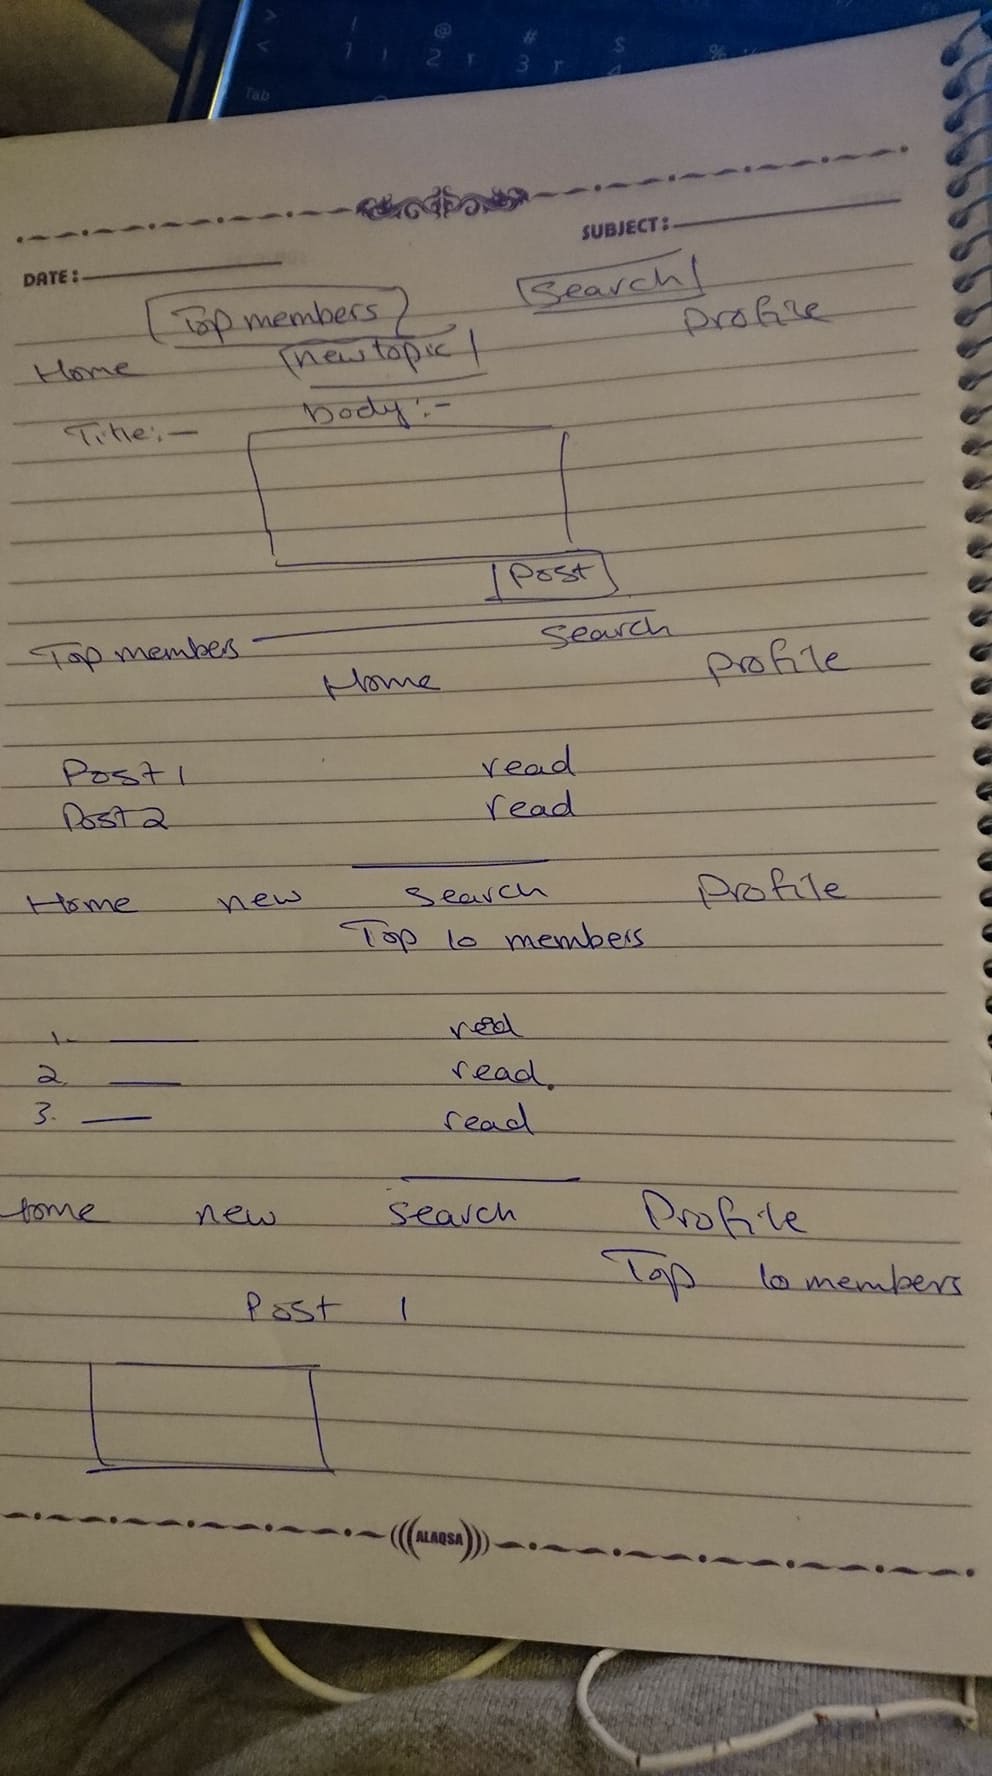 > ! @ # $ %
< 1 1 2 r 3 r 4
Tab
SUBJECT:
DATE:
Top members Search
Home new topic Profile
Title:- body:-
Post
Top members Search
Home Profile
Post 1 read
Post 2 read
Home new Search Profile
Top 10 members
1. read
2 read.
3. read
Home new Search Profile
Top 10 members
Post 1
ALAQSA